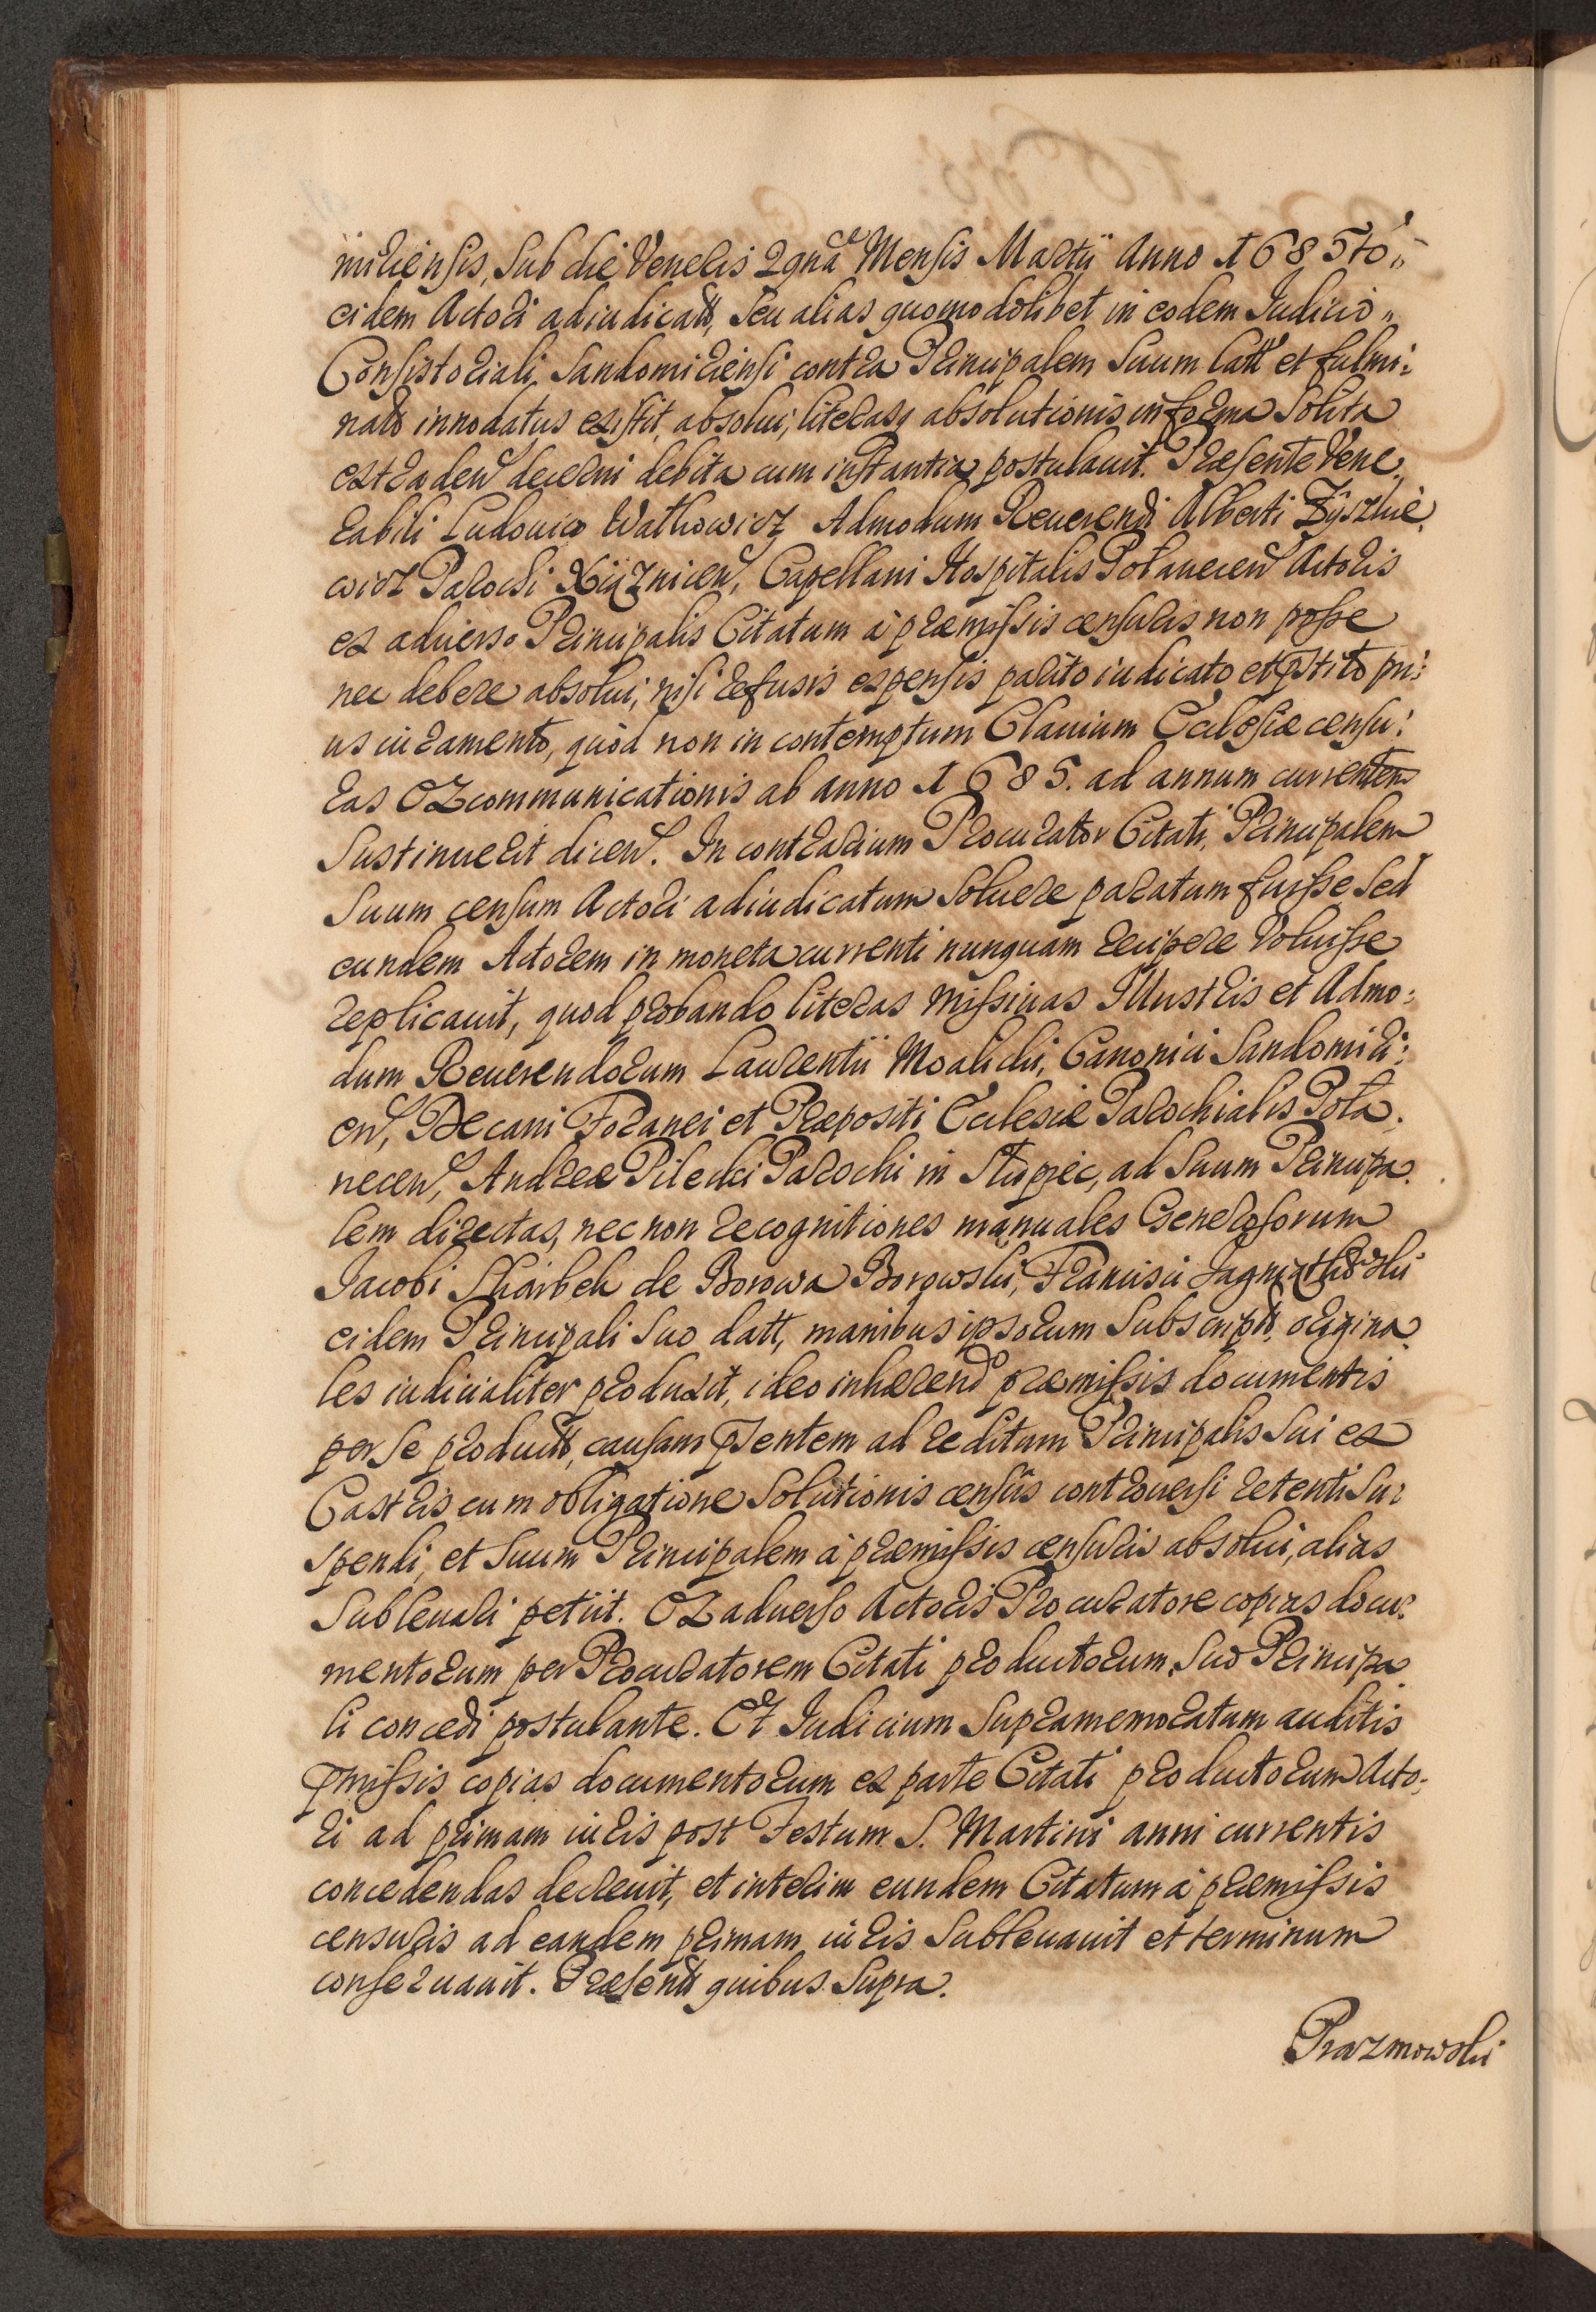 miriensis, Sub die Veneris 2gna Mensis Martij Anno 1685to
eidem Actori adiudicatt, Seu alias quomodolibet in eodem Iudicio
Consistoriali Sandomiriensi contra Principalem Suum latt et fulmi:
natt innodatus existit, absolui, literasq absolutionis in forma Solita
extraden decerni debita cum instantia postulauit. Præsente Vene
rabili Ludouico Watkowicz Admodum Reuerendi Alberti Zyszkie
wicz Parochi Xiąznicen, Capellani Hospitalis Połanecen Actoris
ex aduerso Principalis Citatum à præmissis censuris non posse
nec debere absolui, nisi refusis expensis parito iudicato et pstito pri:
us iuramento, quòd non in contemptum Clauium Ecclesiæ censu:
ras Excommunicationis ab anno 1685. ad annum currentem
Sustinuerit dicen. In contrarium Procurator Citati, Principalem
Suum censum Actori adiudicatum Soluere paratum fuisse, Sed
eundem Actorem in moneta currenti nunquam recipere Voluisse
replicauit, quod probando literas missiuas Illustris et Admo:
dum Reuerendorum Laurentii Moalicki, Canonici Sandomiri:
en, Decani Foranei et Præpositi Ecclesiæ Parochialis Poła
necen, Andreæ Pilecki Parochi in Słupiec, ad Suum Principa
lem directas, nec non recognitiones manuales Generosorum
Jacobi Skarbek de Borowa Borowski, Francisci
eidem Principali Suo datt, manibus ipsorum Subscriptt, origina
les iudicialiter produxit, ideo inhærendo præmissis documentis
per Se productt, causam psentem ad reditum Principalis Sui ex
Castris cum obligatione Solutionis censûs controuersi retenti Su:
spendi, et Suum Principalem à præmissis censuris absolui, alias
Subleuari petiit. Ex aduerso Actoris Procuratore copias docu:
mentorum per Procuratorem Citati productorum, Suo Principa
li concedi postulante. Et Iudicium Supramemoratum auditis
pmissis copias documentorum ex parte Citati productorum Acto:
ri ad primam iuris post Festum S. Martini anni currentis
concedendas decreuit, et interim eundem Citatum à præmissis
censuris ad eandem primam iuris Subleuauit et terminum
conseruauit. Præsentt quibus Supra.
Prazmowski